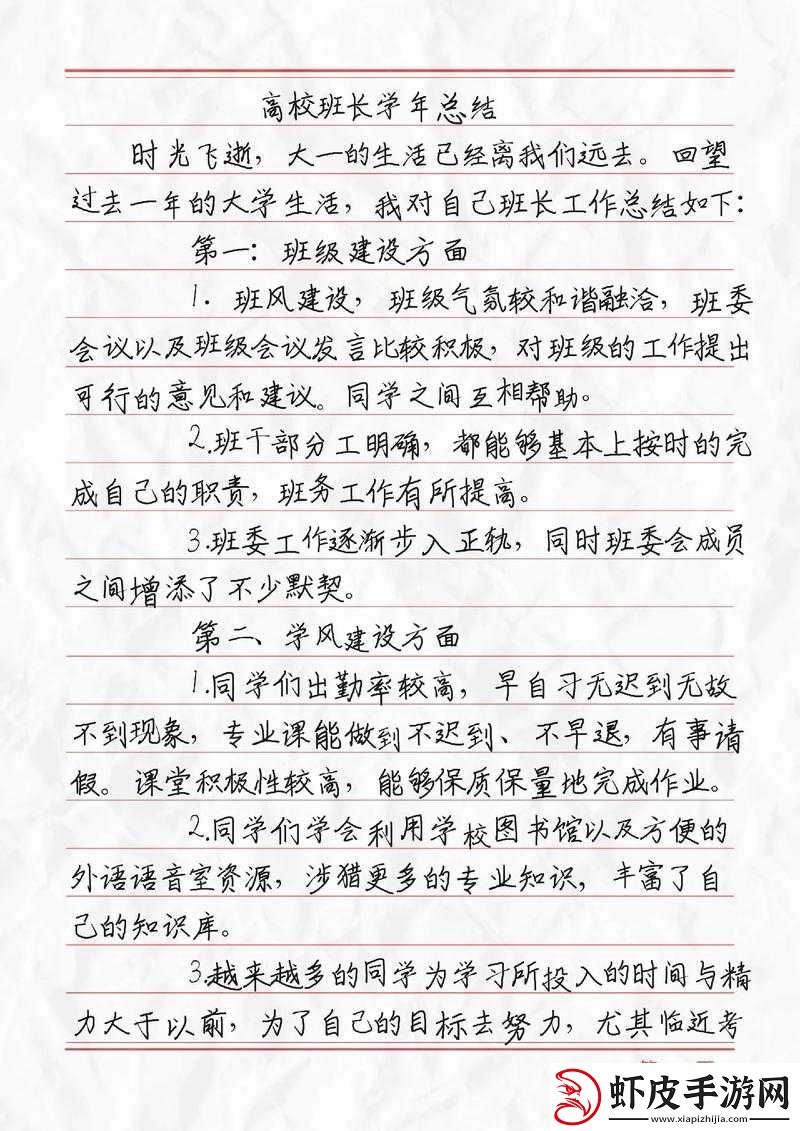 高校班长学年总结
时光飞逝，大一的生活已经离我们远去。回望
过去一年的大学生活，我对自己班长工作总结如下：
第一：班级建设方面
1. 班风建设，班级气氛较和谐融洽，班委
会议以及班级会议发言比较积极，对班级的工作提出
可行的意见和建议。同学之间互相帮助。
2.班干部分工明确，都能够基本上按时的完
成自己的职责，班务工作有所提高。
3.班委工作逐渐步入正轨，同时班委会成员
之间增添了不少默契。
第二、学风建设方面
1.同学们出勤率较高，早自习无迟到无故
不到现象，专业课能做到不迟到、不早退，有事请
假。课堂积极性较高，能够保质保量地完成作业。
2.同学们学会利用学校图书馆以及方便的
外语语音室资源，涉猎更多的专业知识，丰富了自
己的知识库。
3.越来越多的同学为学习所投入的时间与精
力大于以前，为了自己的目标去努力，尤其临近考
虾皮手游网
www.xiapizhijia.com